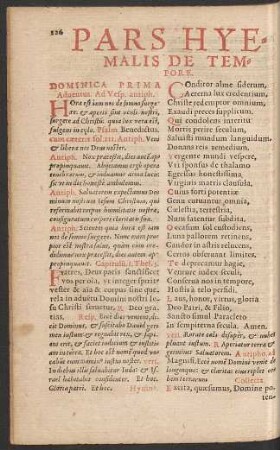 126
PARS HYE-
MALIS DE TEM-
PORE.
DOMINICA PRIMA
Aduentus. Ad Vesp. antiph.
HOra est iam nos de somno surge-
re: & aperti sunt oculi nostri,
surgere ad Christum: quia lux vera est,
fulgens in cælo. Psalm. Benedictus,
cum cæteris fol. 111. Antiph. Veni
& libera nos Deus noster.
Antiph. Nox præcessit, dies autem ap-
propinquauit. Abijciamus ergo opera
tenebrarum, & induamur arma lucis:
sic ut in die honestè ambulemus.
Antiph. Saluatorem expectamus Do-
minum nostrum Iesum Christum, qui
reformabit corpus humilitatis nostræ,
configuratum corpori claritatis suæ.
Antiph. Scientes quia hora est iam
nos de somno surgere. Nunc enim pro-
pior est nostra salus, quàm cum cre-
didimus: nox præcessit, dies autem ap-
propinquauit. Capitulū. 1. Thes. 5.
FRatres, Deus pacis sanctificet
vos per oia, vt integer spiritus
vester & aïa & corpus sine que-
rela in aduētu Domini nostri Ie-
su Christi seruetur. R. Deo gra-
tias.
Israel habitabit confidenter. Et hoc.
Gloria patri. Et hoc. Hymnus.
COnditor alme siderum,
Aeterna lux credentium,
Christe redemptor omnium,
Exaudi preces supplicum.
Qui condolens interitu
Mortis perire seculum,
Saluasti mundum languidum,
Donans reis remedium.
Vergente mundi vespere,
Vti sponsus de thalamo
Egressus honestissima,
Virginis matris clausula.
Cuius forti potentiæ
Genu curuantur omnia,
Cælestia, terrestria,
Nutu fatentur subdita.
Occasum sol custodiens,
Luna pallorem retinens,
Candor in astris relucens,
Certos obseruant limites.
Te deprecamur hagie,
Venture iudex seculi,
Conserua nos in tempore,
Hostis à telo perfidi.
Laus, honor, virtus, gloria
Deo Patri, & Filio,
Sancto simul Paracleto
In sempiterna secula. Amen.
Vers. Rorate cæli desuper, & nubes
pluant iustum. R. Aperiatur terra &
germinet Saluatorem. Antipho. ad
Magnif. Ecce nomen Domini venit
de longinquo: & claritas eius replet or-
bem terrarum. Collecta.
EXcita, quæsumus, Domine po-
ten-